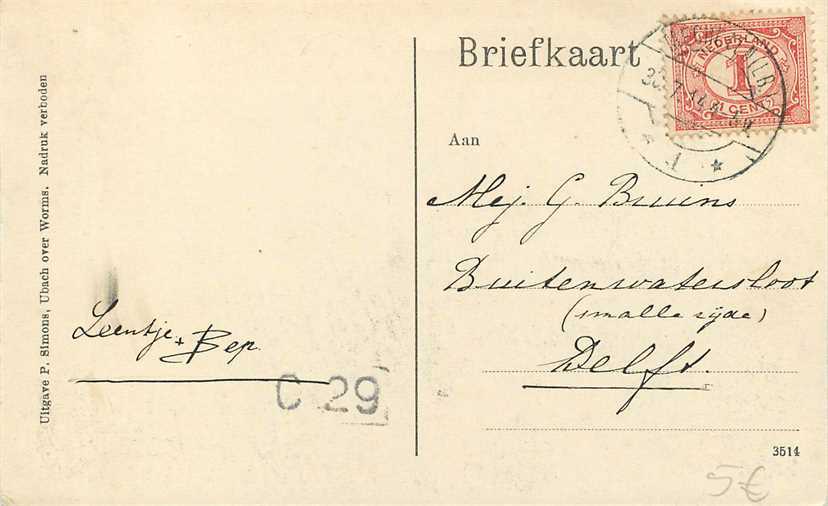 Uitgave P. Simons, Ubach over Worms. Nadruk verboden
Leentje + Bep
C 29
Briefkaart
NEDERLAND
1
CENT
Aan
Mej. G. Bruins
Buitenwatersloot
(smalle zijde)
Delft.
3514
5€